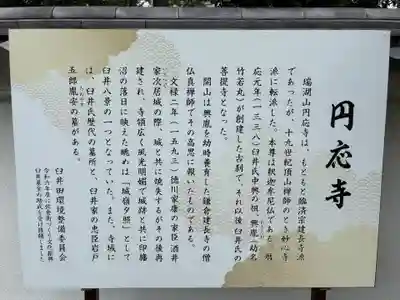 円応寺
瑞湖山円応寺は、もともと臨済宗建長寺派
であったが、十九世紀頂山禅師のとき妙心寺
派に転派した。本尊は釈迦牟尼仏である。暦
応元年(一三三八)臼井氏中興の祖、興胤(幼名
竹若丸)が創建した古刹で、それ以後臼井氏の
菩提寺となった。
開山は興胤を幼時養育した鎌倉建長寺の僧
仏真禅師でその高恩に報いたものである。
文禄二年(一五九三)徳川家康の家臣酒井
家次居城の際、城と共に焼失するがその後再
建され、寺領広く風光明媚で城跡と共に印旛
沼の落日に映えた眺めは「城嶺夕照」として
臼井八景の一つとなっていた。また、寺域に
は、臼井氏歴代の墓所と、臼井家の忠臣岩戸
五郎胤安の墓がある。
臼井田環境整備委員会
令和六年度に佐倉市